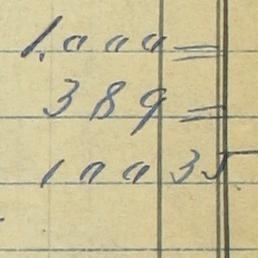 1.000=
389=
10035